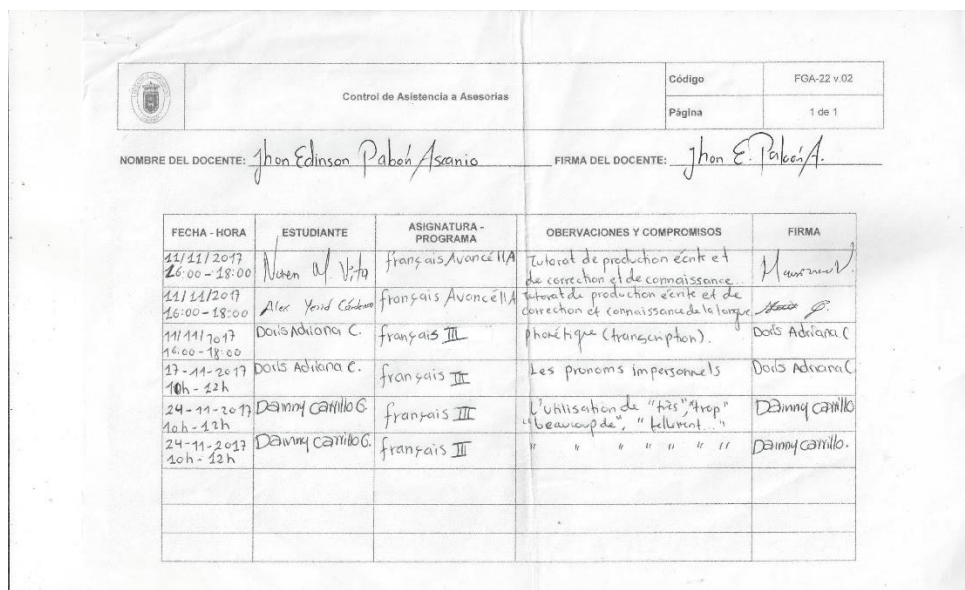 Control de Asistencia a Asesorias
Código
FGA-22 v.02
Página
1 de 1
NOMBRE DEL DOCENTE: Jhon Edinson Pabón Ascanio
FIRMA DEL DOCENTE: Jhon E. Pabón A.
FECHA - HORA
ESTUDIANTE
ASIGNATURA -
PROGRAMA
OBERVACIONES Y COMPROMISOS
FIRMA
11/11/2017
16:00 - 18:00
français Avancé IIA
Tutorat de production écrite et
de correction et de connaissance
11/11/2017
16:00 - 18:00
Alex Yesid
français Avancé IIA
Tutorat de production écrite et de
correction et connaissance de la langue
11/11/2017
16:00 - 18:00
Doris Adriana C.
français III
phonétique (transcription).
Doris Adriana C
17-11-2017
10h - 12h
Doris Adriana C.
français III
Les pronoms impersonnels
Doris Adriana C
24-11-2017
10h - 12h
Danny Carrillo G.
français III
L'utilisation de "très", "trop"
"beaucoup de", "tellement..."
Danny Carrillo
24-11-2017
10h - 12h
Danny Carrillo G.
français III
" " " " " " "
Danny Carrillo.